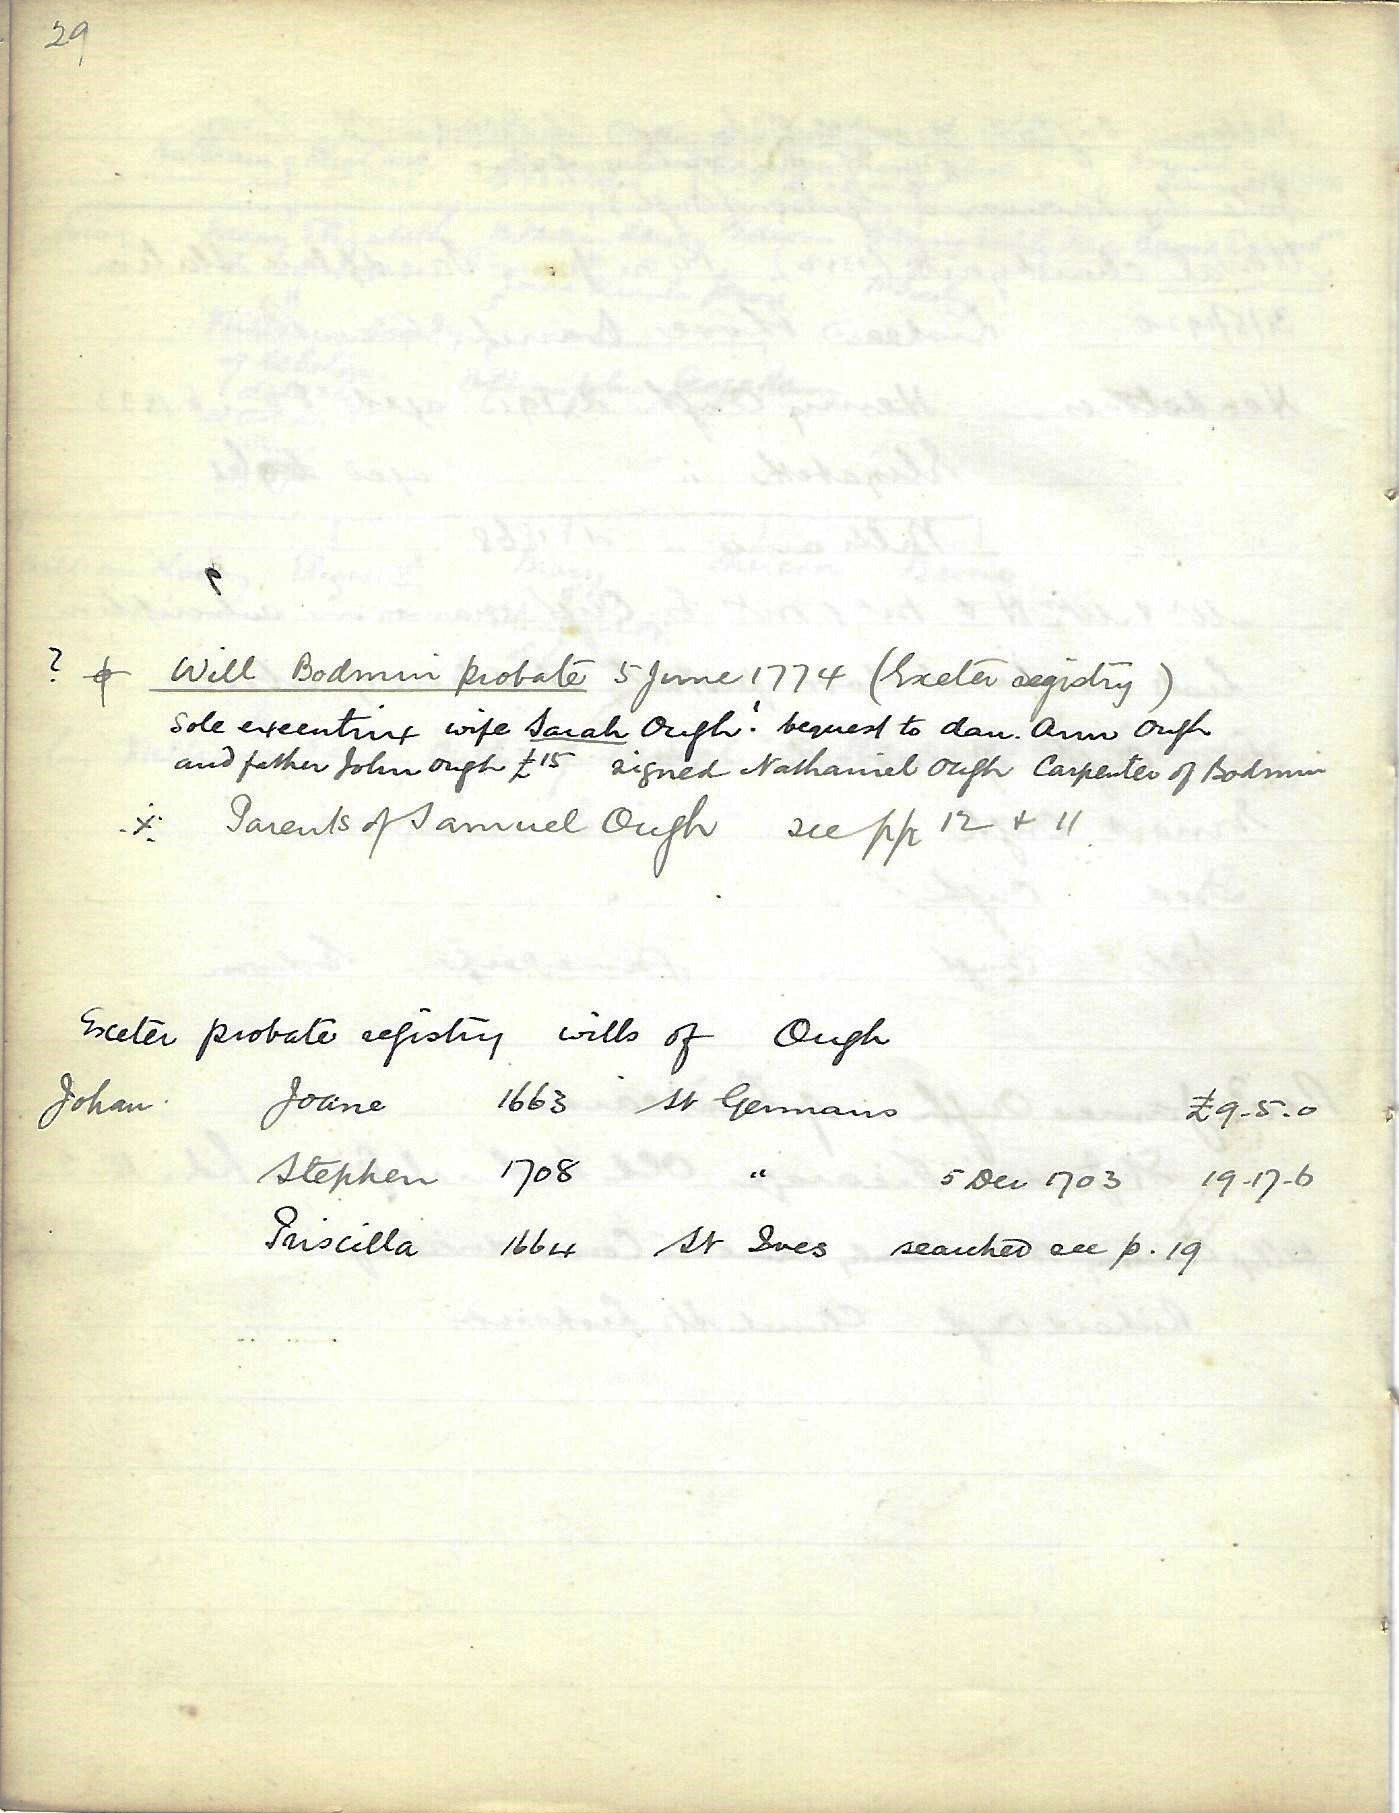 29
? Will Bodmin probate 5 June 1774 (Exeter registry)
Sole executrix wife Sarah Ough. bequest to dau. Ann Ough
and father John Ough £15 signed Nathaniel Ough Carpenter of Bodmin
x Parents of Samuel Ough see pp 12 + 11
Exeter probate registry wills of Ough
Johan Joane 1663 St Germans £9-5-0
Stephen 1708 " 5 Dec 1703 19-17-6
Priscilla 1664 St Ives searched see p. 19